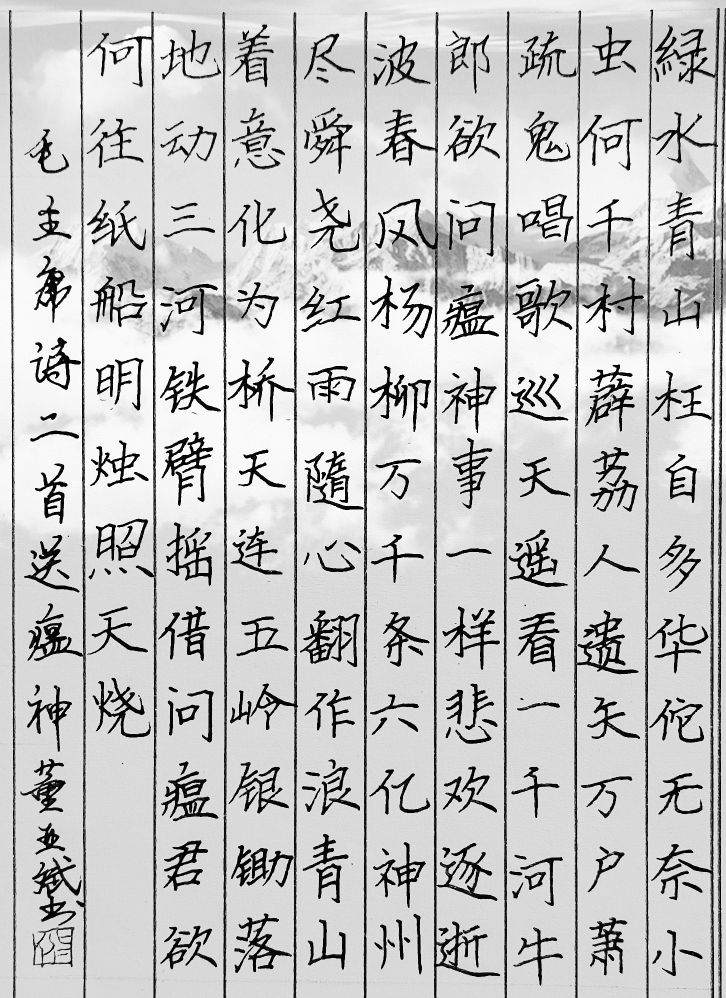 緑水青山枉自多华佗无奈小
虫何千村薜荔人遗矢万户萧
疏鬼唱歌巡天遥看一千河牛
郎欲问瘟神事一样悲欢逐逝
波春风杨柳万千条六亿神州
尽舜尧红雨隨心翻作浪青山
着意化为桥天连五岭银锄落
地动三河铁臂摇借问瘟君欲
何往纸船明烛照天烧
毛主席诗二首送瘟神董亚斌书